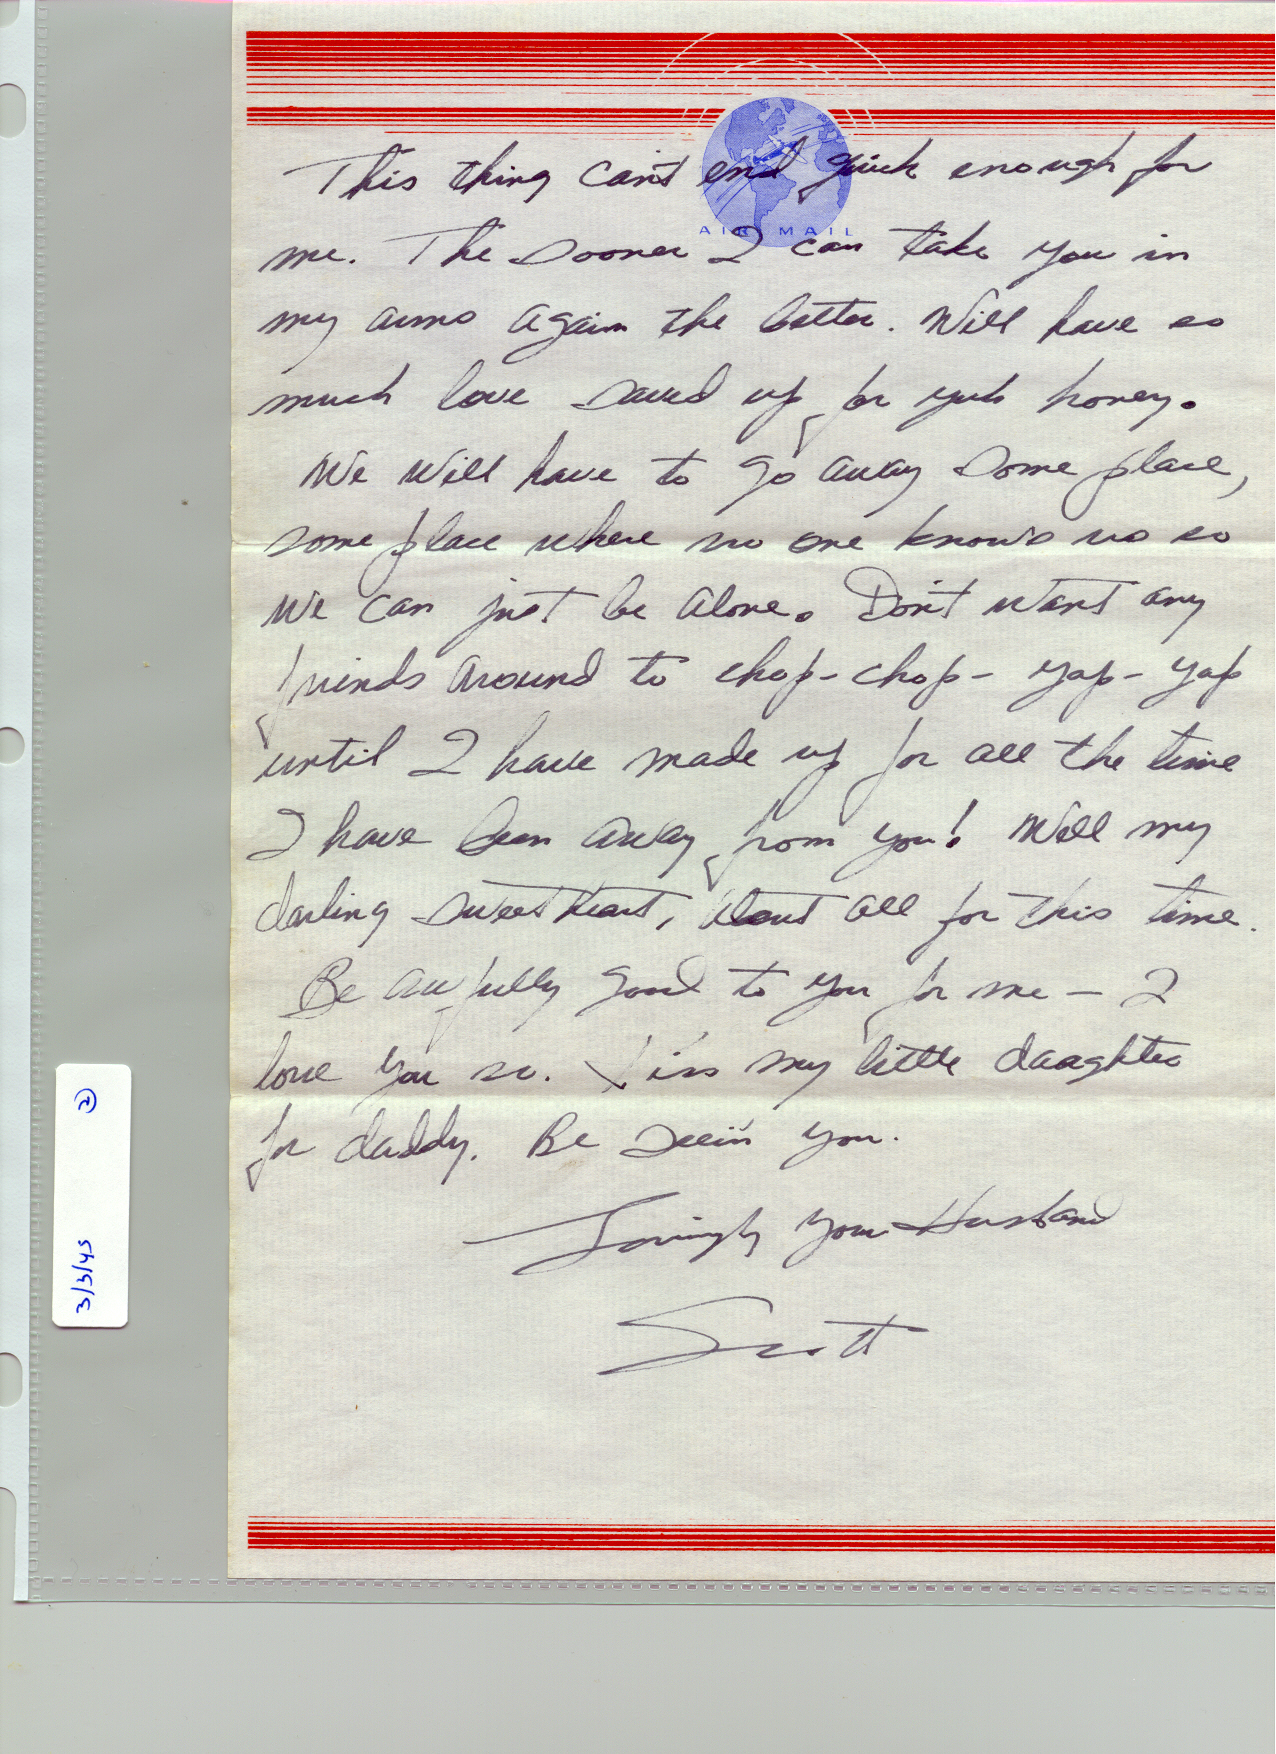 AIR MAIL
This thing can't end quick enough for
me. The sooner I can take you in
my arms again the better. Will have so
much love saved up for yuh honey.
We will have to go away some place,
some place where no one knows us so
we can just be alone. Don't want any
friends around to chop-chop-yap-yap
until I have made up for all the time
I have been away from you! Well my
darling sweetheart, about all for this time.
Be awfully good to you for me — I
love you so. Kiss my little daughter
for daddy. Be seein' you.
Lovingly Your Husband
Scott
3/3/45 2